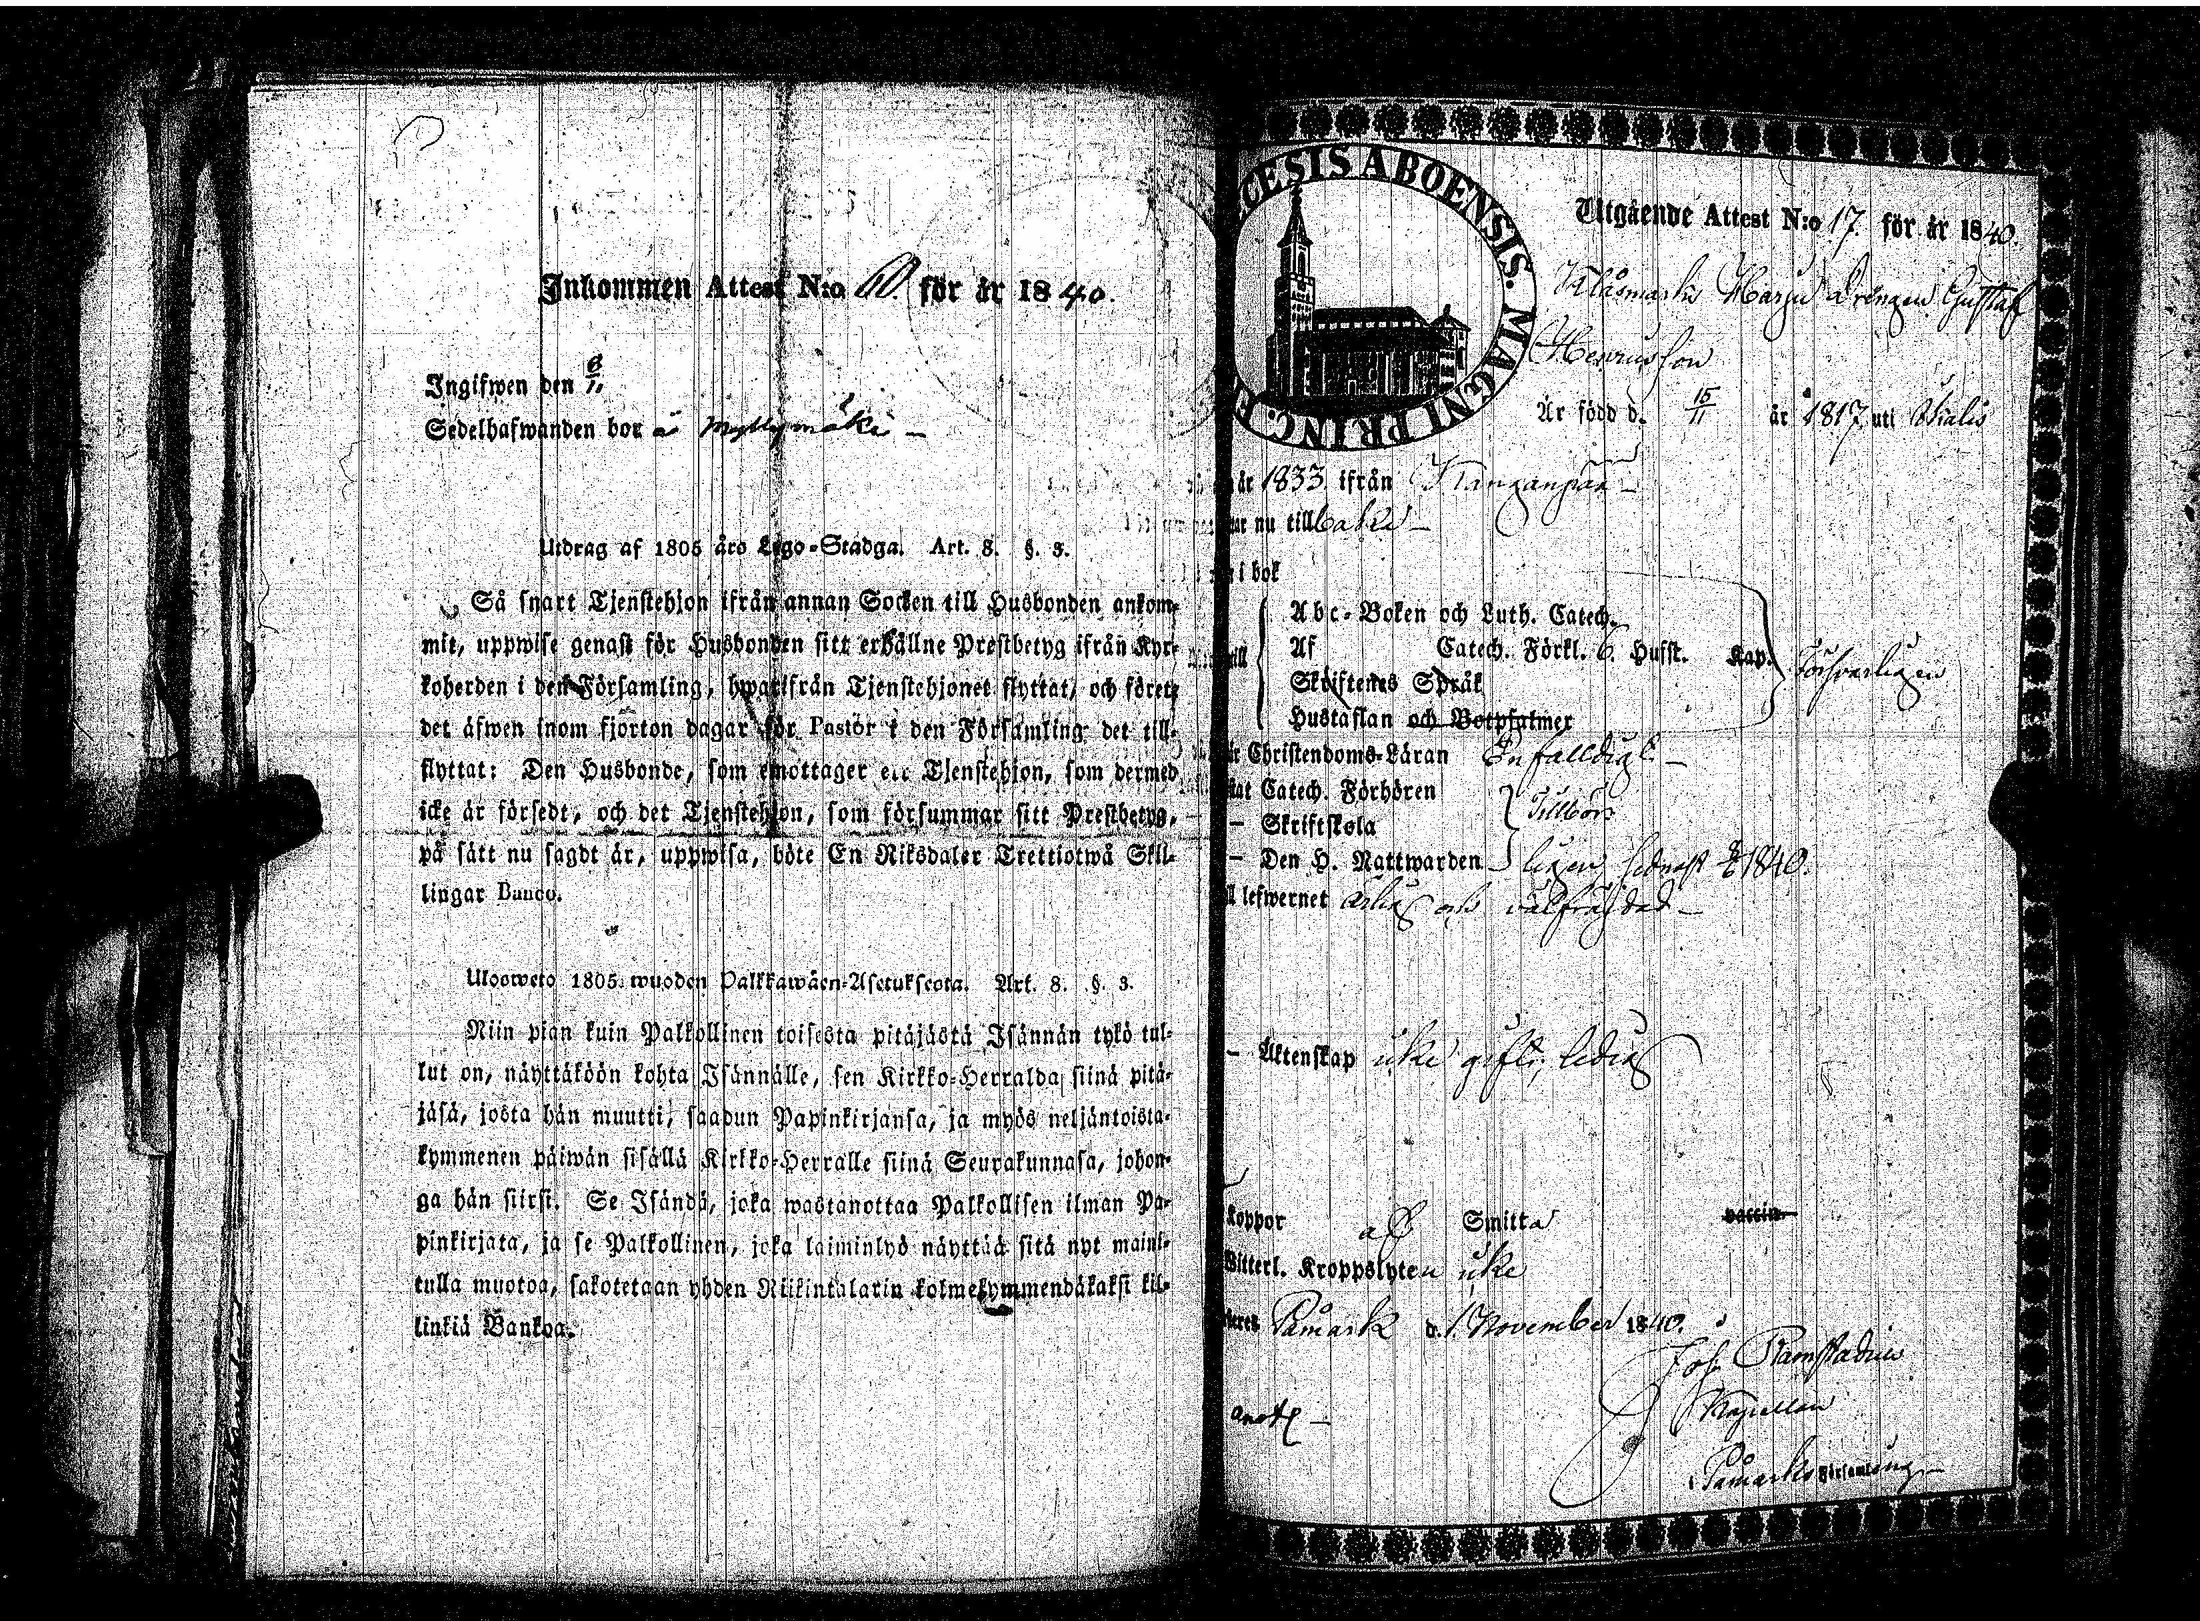 Inkommen Attest N:o 60. för år 1840.
Ingifwen den 6/11
Sedelhafwanden bor å Myllymäki –
Utdrag af 1805 års Lego-Stadga. Art. 8. §. 3.
Så snart Tjenstehjon ifrån annan Socken till Husbonden ankom-
mit, uppwise genast för Husbonden sitt erhållne Prestbetyg ifrån Kyr-
koherden i den Församling, hwarifrån Tjenstehjonet flyttat, och förete
det äfwen inom fjorton dagar för Pastor i den Församling det till-
flyttat: Den Husbonde, som emottager ett Tjenstehjon, som dermed
icke är försedt, och det Tjenstehjon, som försummar sitt Prestbetyg,
på sätt nu sagdt är, uppwisa, böte En Riksdaler Trettiotwå Skil-
lingar Banco.
Uloswеto 1805 wuoden Palkkawäen-Asetuksesta. Art. 8. §. 3.
Niin pian kuin Palkollinen toisesta pitäjästä Isännän tykö tul-
lut on, näyttäköön kohta Isännälle, sen Kirkko-Herralda siinä pitä-
jäsä, josta hän muutti, saadun Papinkirjansa, ja myös neljäntoista-
kymmenen päiwän sisällä Kirkko-Herralle siinä Seurakunnasa, johon-
ga hän siirsi. Se Isändä, joka wastanottaa Palkollisen ilman Pa-
pinkirjata, ja se Palkollinen, joka laiminlyö näyttää sitä nyt maini-
tulla muotoa, sakotetaan yhden Riikintalarin kolmekymmendäkaksi kil-
linkiä Bankoa.
CESIS ABOENSIS. MAGNI PRINC. F
Utgående Attest N:o 17 för år 1840.
Klåsmarks Harju Drängen Gustaf
Henriksson
Är född d. 15/11 år 1817 uti Ihalis
år 1833 ifrån Kanganpää –
nu tillbaka –
i bok
Abc-Boken och Luth. Catech.
Af Catech. Förkl. 6. Hufst. Kap.
Skriftenes Språk
Hustaflan och Botpsalmer
Försvarligen
Christendoms-Läran Enfalldigt –
Catech. Förhören
– Skriftskola
Tillbör-
– Den H. Nattwarden ligen, sednast 1840.
lefwernet ärlig och välfrägdad –
– Äktenskap icke gift, ledig
koppor af Smitta vaccin.
Witterl. Kroppslyten icke
Påmark d. 1 November 1840.
Joh. Ramstadius
Kapellan
Påmarks Församling –